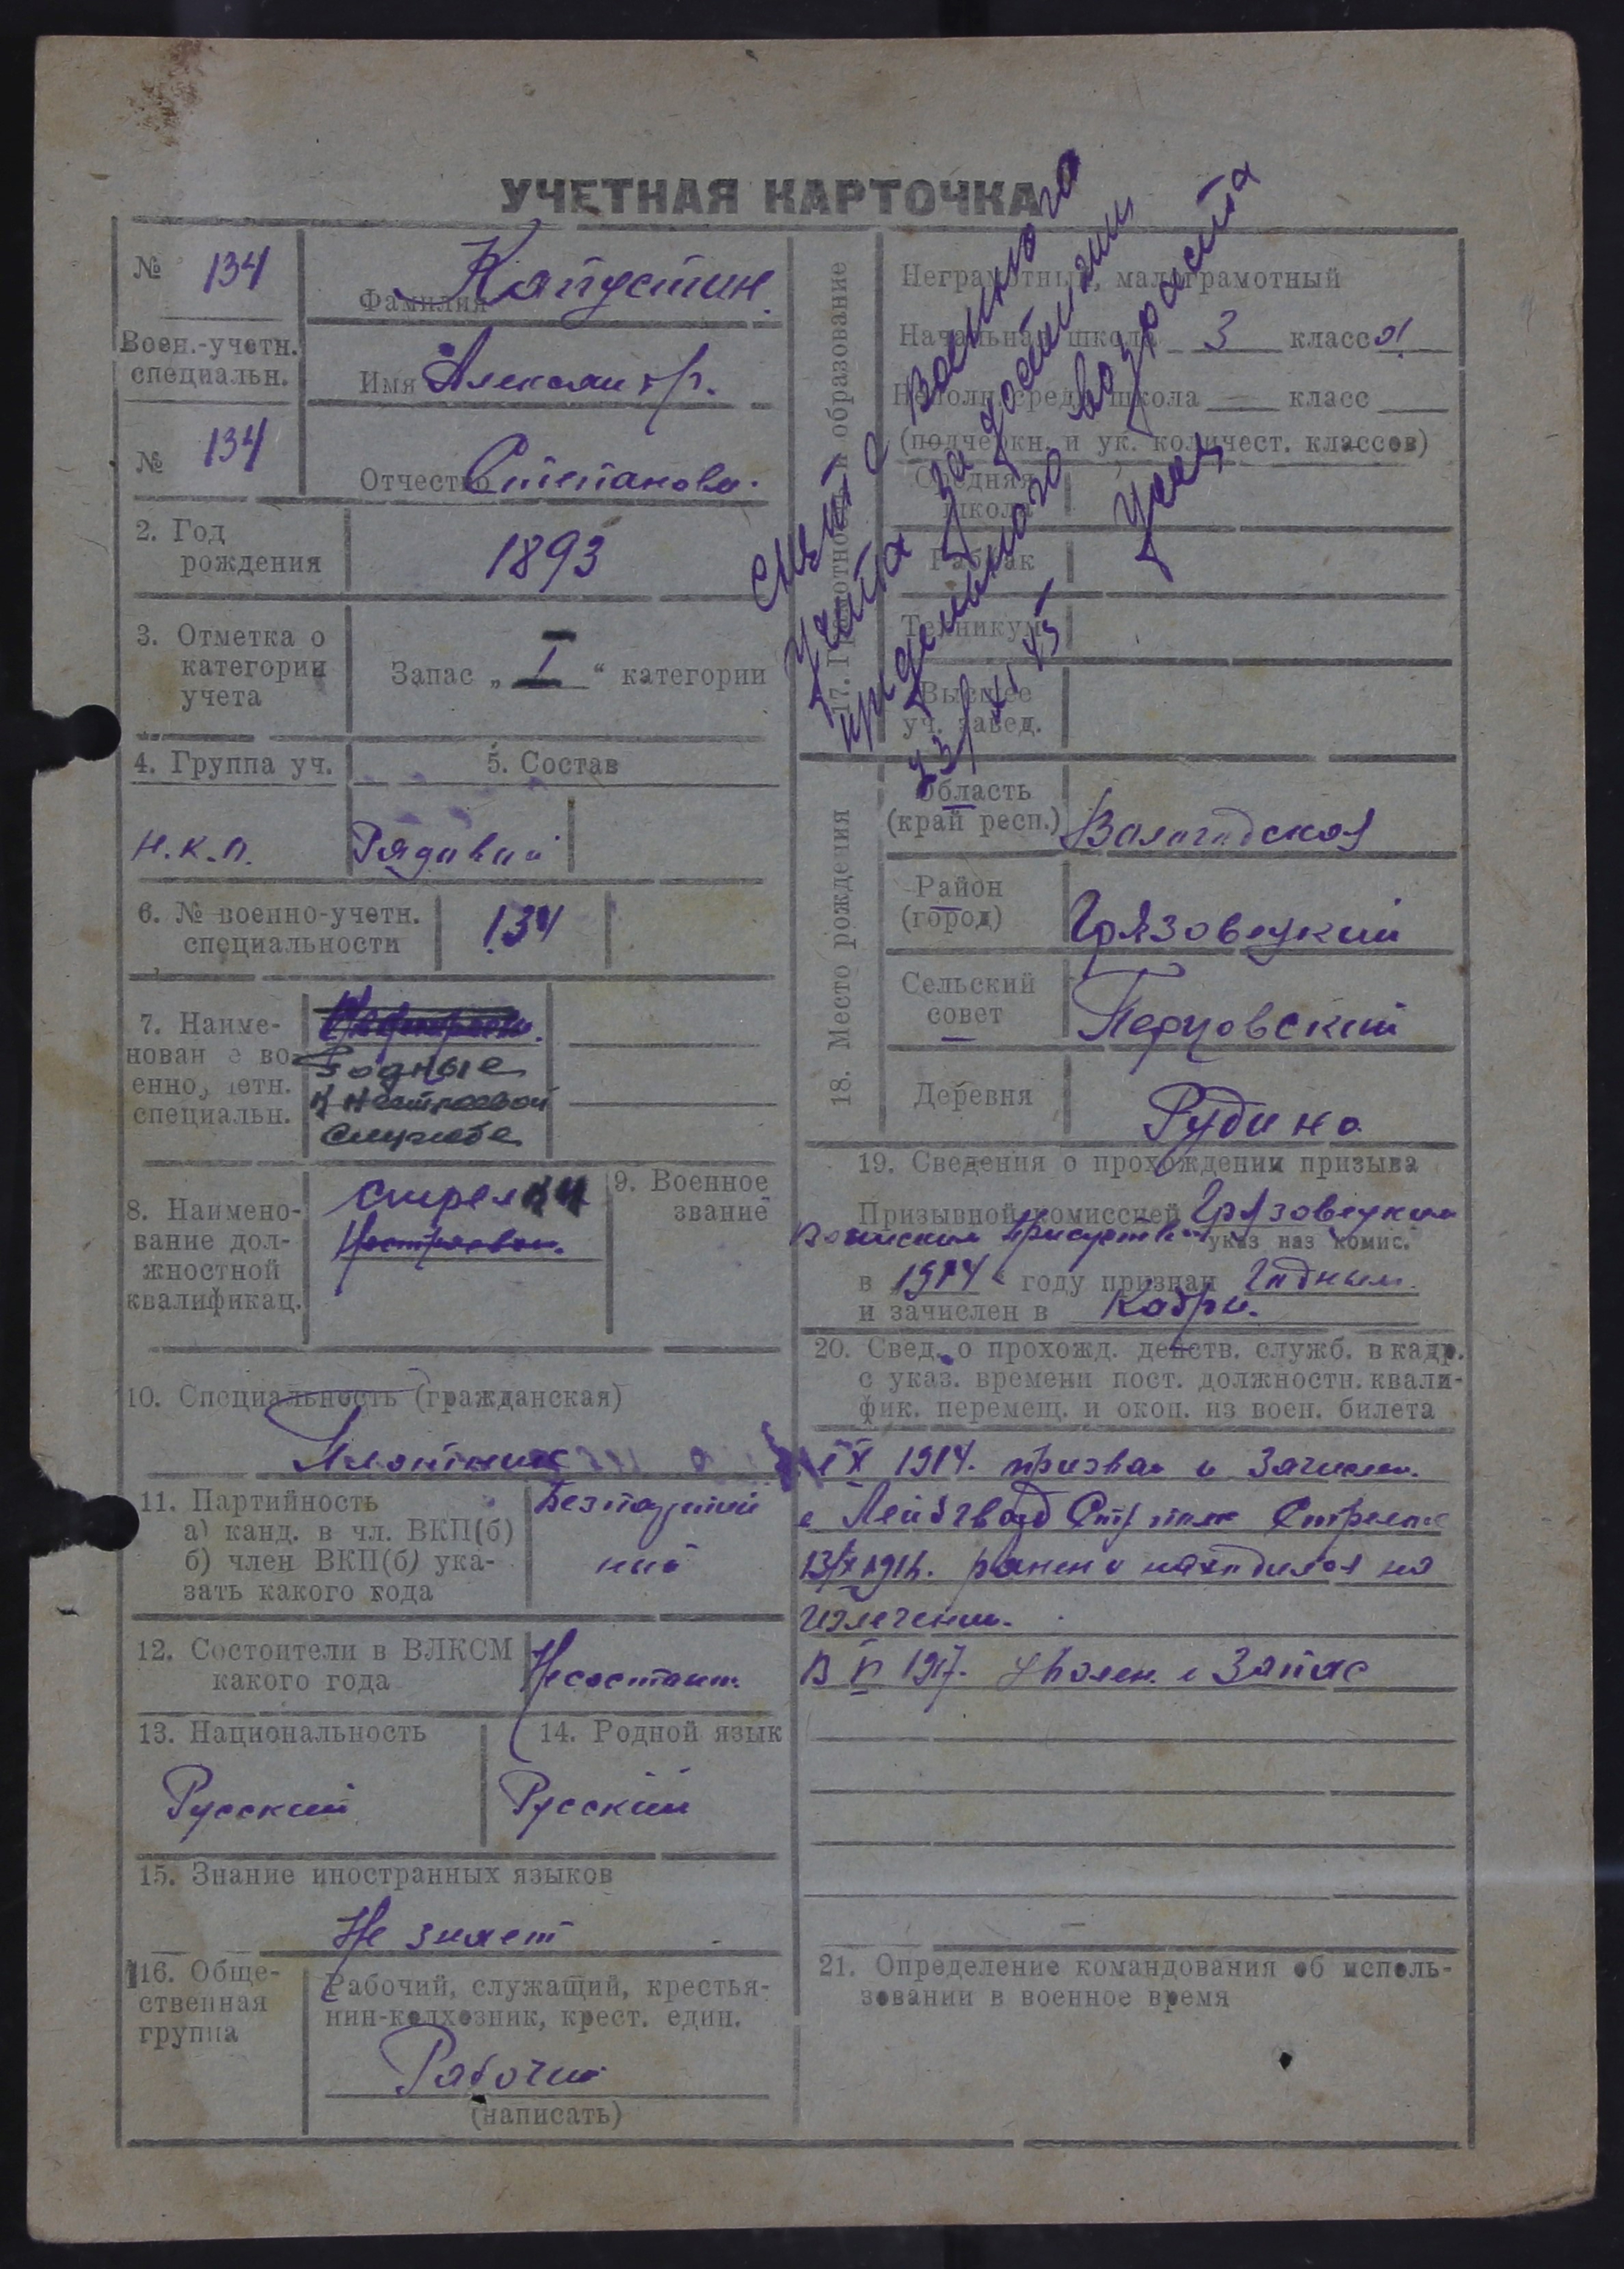 УЧЕТНАЯ КАРТОЧКА
№ 134
Воен.-учетн.
специальн.
№ 134
Фамилия Капустин
Имя Александр.
Отчество Степанов.
2. Год
рождения
1893
3. Отметка о
категории
учета
Запас „ I “ категории
4. Группа уч.
н.к.п.
5. Состав
Рядовой
6. № военно-учетн.
специальности
134
7. Наиме-
нование во-
енно учетн.
специальн.
Годные
к нестроевой
службе
8. Наимено-
вание дол-
жностной
квалификац.
стрелки
Нестроевой.
9. Военное
звание
10. Специальность (гражданская)
Плотник
11. Партийность
а) канд. в чл. ВКП(б)
б) член ВКП(б) ука-
зать какого года
Безпартий
ный
12. Состоители в ВЛКСМ
какого года
Несостоит.
13. Национальность
Русский
14. Родной язык
Русский
15. Знание иностранных языков
Не знает
16. Обще-
ственная
группа
Рабочий, служащий, крестья-
нин-колхозник, крест. един.
Рабочий
(написать)
снят с военного
учета за достижением
предельного возраста
23/XI 43
17. Грамотность и образование
Неграмотный, малограмотный
Начальная школа 3 класса
Неполн. средн. школа — класс
(подчеркн. и ук. количест. классов)
Средняя
школа
Рабфак
Техникум
Высшее
уч. завед.
18. Место рождения
Область
(край респ.)
Вологодская
Район
(город)
Грязовецкий
Сельский
совет
Перцовский
Деревня
Рудино
19. Сведения о прохождении призыва
Призывной комиссией Грязовецким
Воинским Присутств.
указ наз комис.
в 1914 году признан Годным.
и зачислен в Кадры.
20. Свед. о прохожд. действ. служб. в кадр.
с указ. времени пост. должностн. квали-
фик. перемещ. и окон. из воен. билета
IX 1914. призван и зачислен.
в Лейбгвард Стр полк Стрелк
1916. ранен и находился на
излечении.
В 1917. уволен. в Запас
21. Определение командования об исполь-
зовании в военное время